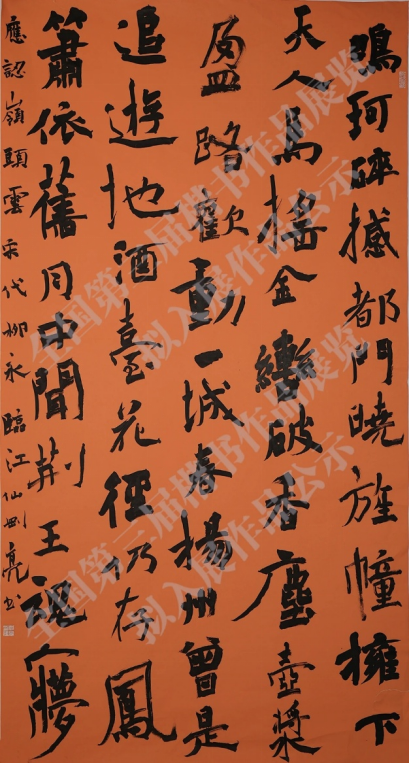 鳴珂碎撼都門曉旌幢擁下
天人馬搖金轡破香塵壺漿
盈路歡動一城春楊州曾是
追遊地酒臺花徑仍存鳳
簫依舊月中聞荆王魂夢
應認嶺頭雲 宋代柳永臨江仙 亮书
全国第三届楷书作品展览
拟入展作品公示
全国第三届楷书作品展览
拟入展作品公示